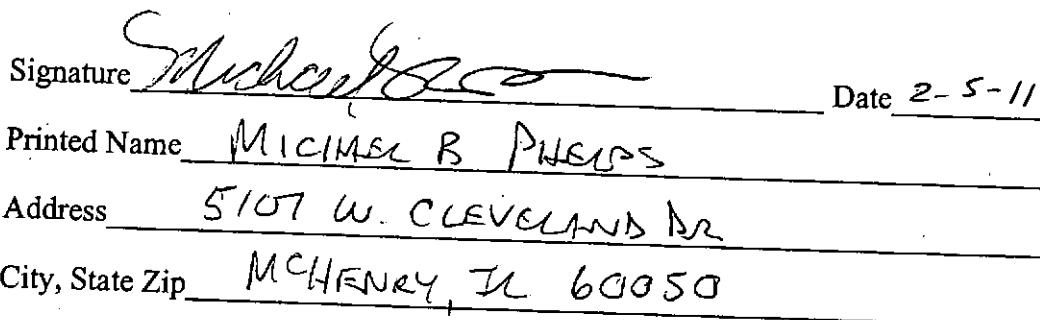 Signature Michael Date 2-5-11
Printed Name MICHAEL B PHELPS
Address 5107 W. CLEVELAND DR
City, State Zip MCHENRY, IL 60050